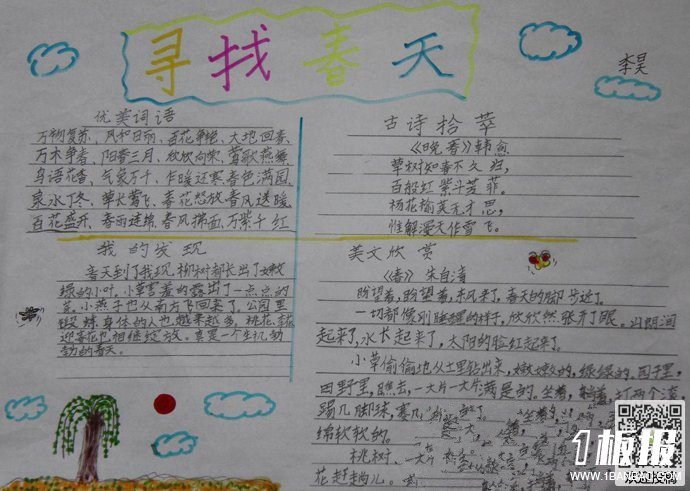 寻找春天
李昊
优美词语
万物复苏、风和日丽、百花争艳、大地回春、
万木争春、阳春三月、欣欣向荣、莺歌燕舞
鸟语花香、气象万千、乍暖还寒春色满园、
泉水丁冬、草长莺飞、春花怒放春风送暖、
百花盛开、春雨连绵、春风拂面、万紫千红
古诗拾萃
《晚春》韩愈
草树知春不久归,
百般红紫斗芳菲。
杨花榆荚无才思,
惟解漫天作雪飞。
我的发现
春天到了我现,柳树都长出了嫩
绿的小叶,小草害羞的露出了一点点的
芽。小燕子也从南方飞回来了。公园里
锻炼身体的人也越来越多。桃花、
迎春花也相继绽放。真是一个生机动
动的春天。
美文欣赏
《春》朱自清
盼望着,盼望着,东风来了,春天的脚步近了。
一切都像刚睡醒的样子,欣欣然张开了眼。山朗润
起来了,水长起来了,太阳的脸红起来了。
小草偷偷地从土里钻出来,嫩嫩的,绿绿的。园子里,
田野里,瞧去,一大片一大片满是的。坐着,躺着,打两个滚,
踢几脚球,赛几
绵软软的。
桃树、
花赶趟儿。
1板报
WWW.1BANBAO.COM